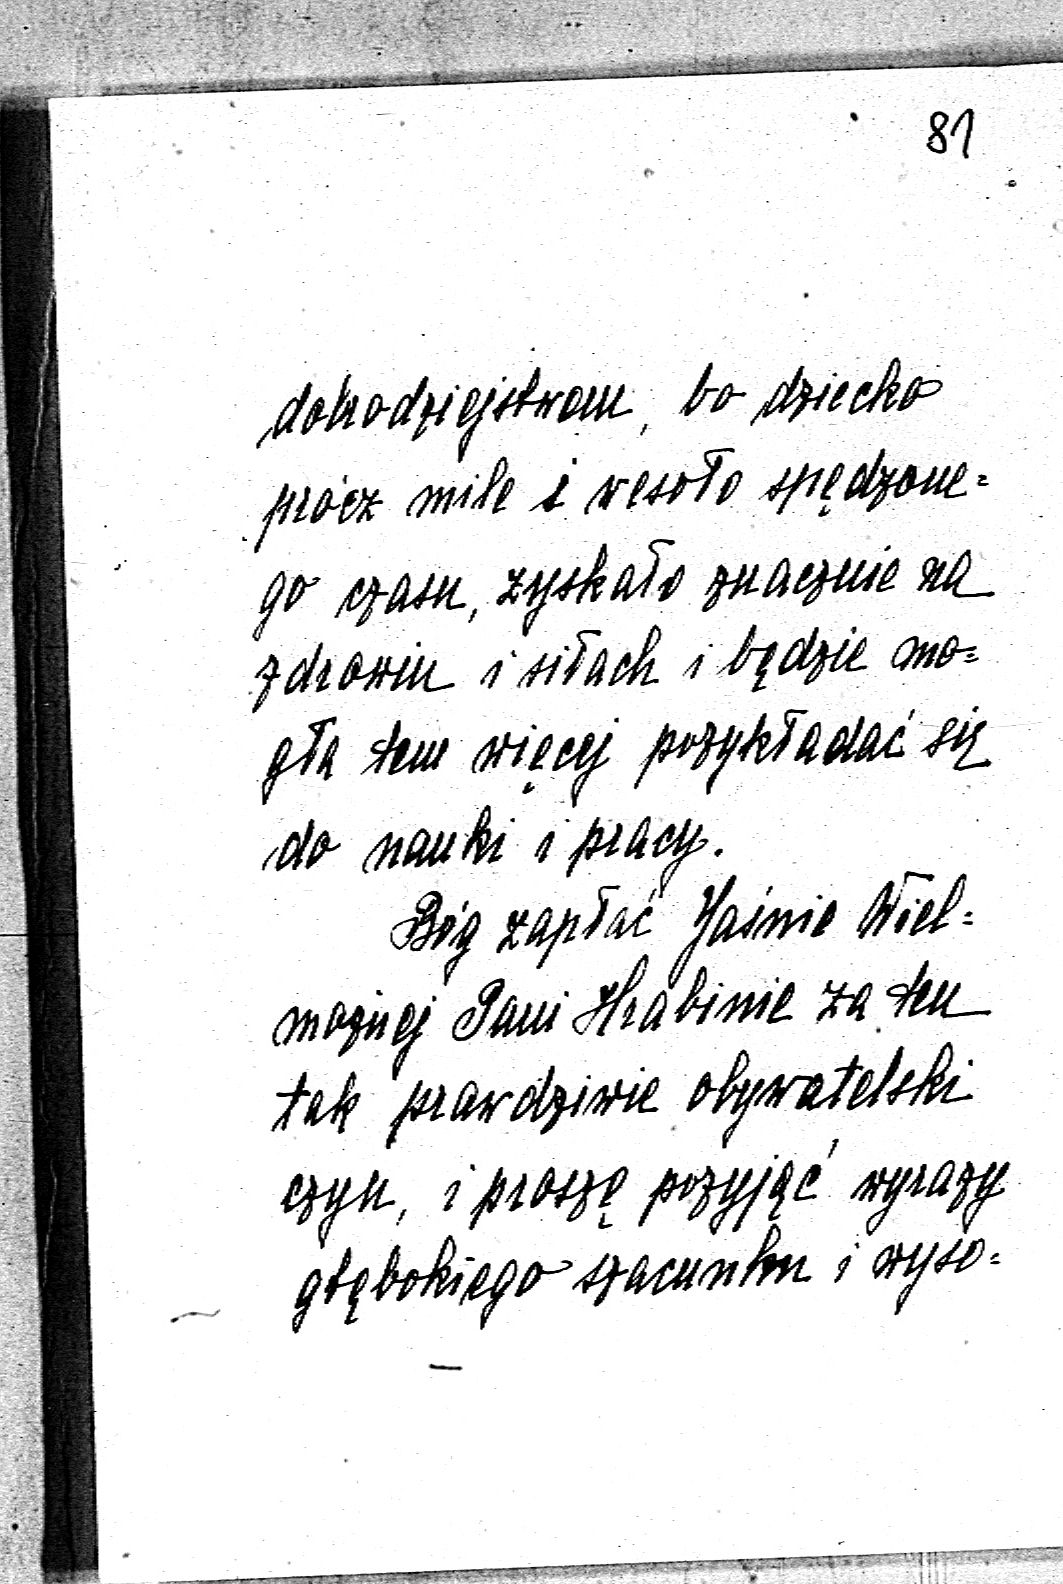 81
dobrodziejstwem, bo dziecko
prócz mile i wesoło spędzone=
go czasu, zyskało znacznie na
zdrowiu i siłach i będzie mo=
gła tem więcej przykładać się
do nauki i pracy.
Bóg zapłać Jaśnie Wiel=
możnej Pani Hrabinie za ten
tak prawdziwie obywatelski
czyn, i proszę przyjąć wyrazy
głębokiego szacunku i wyso=